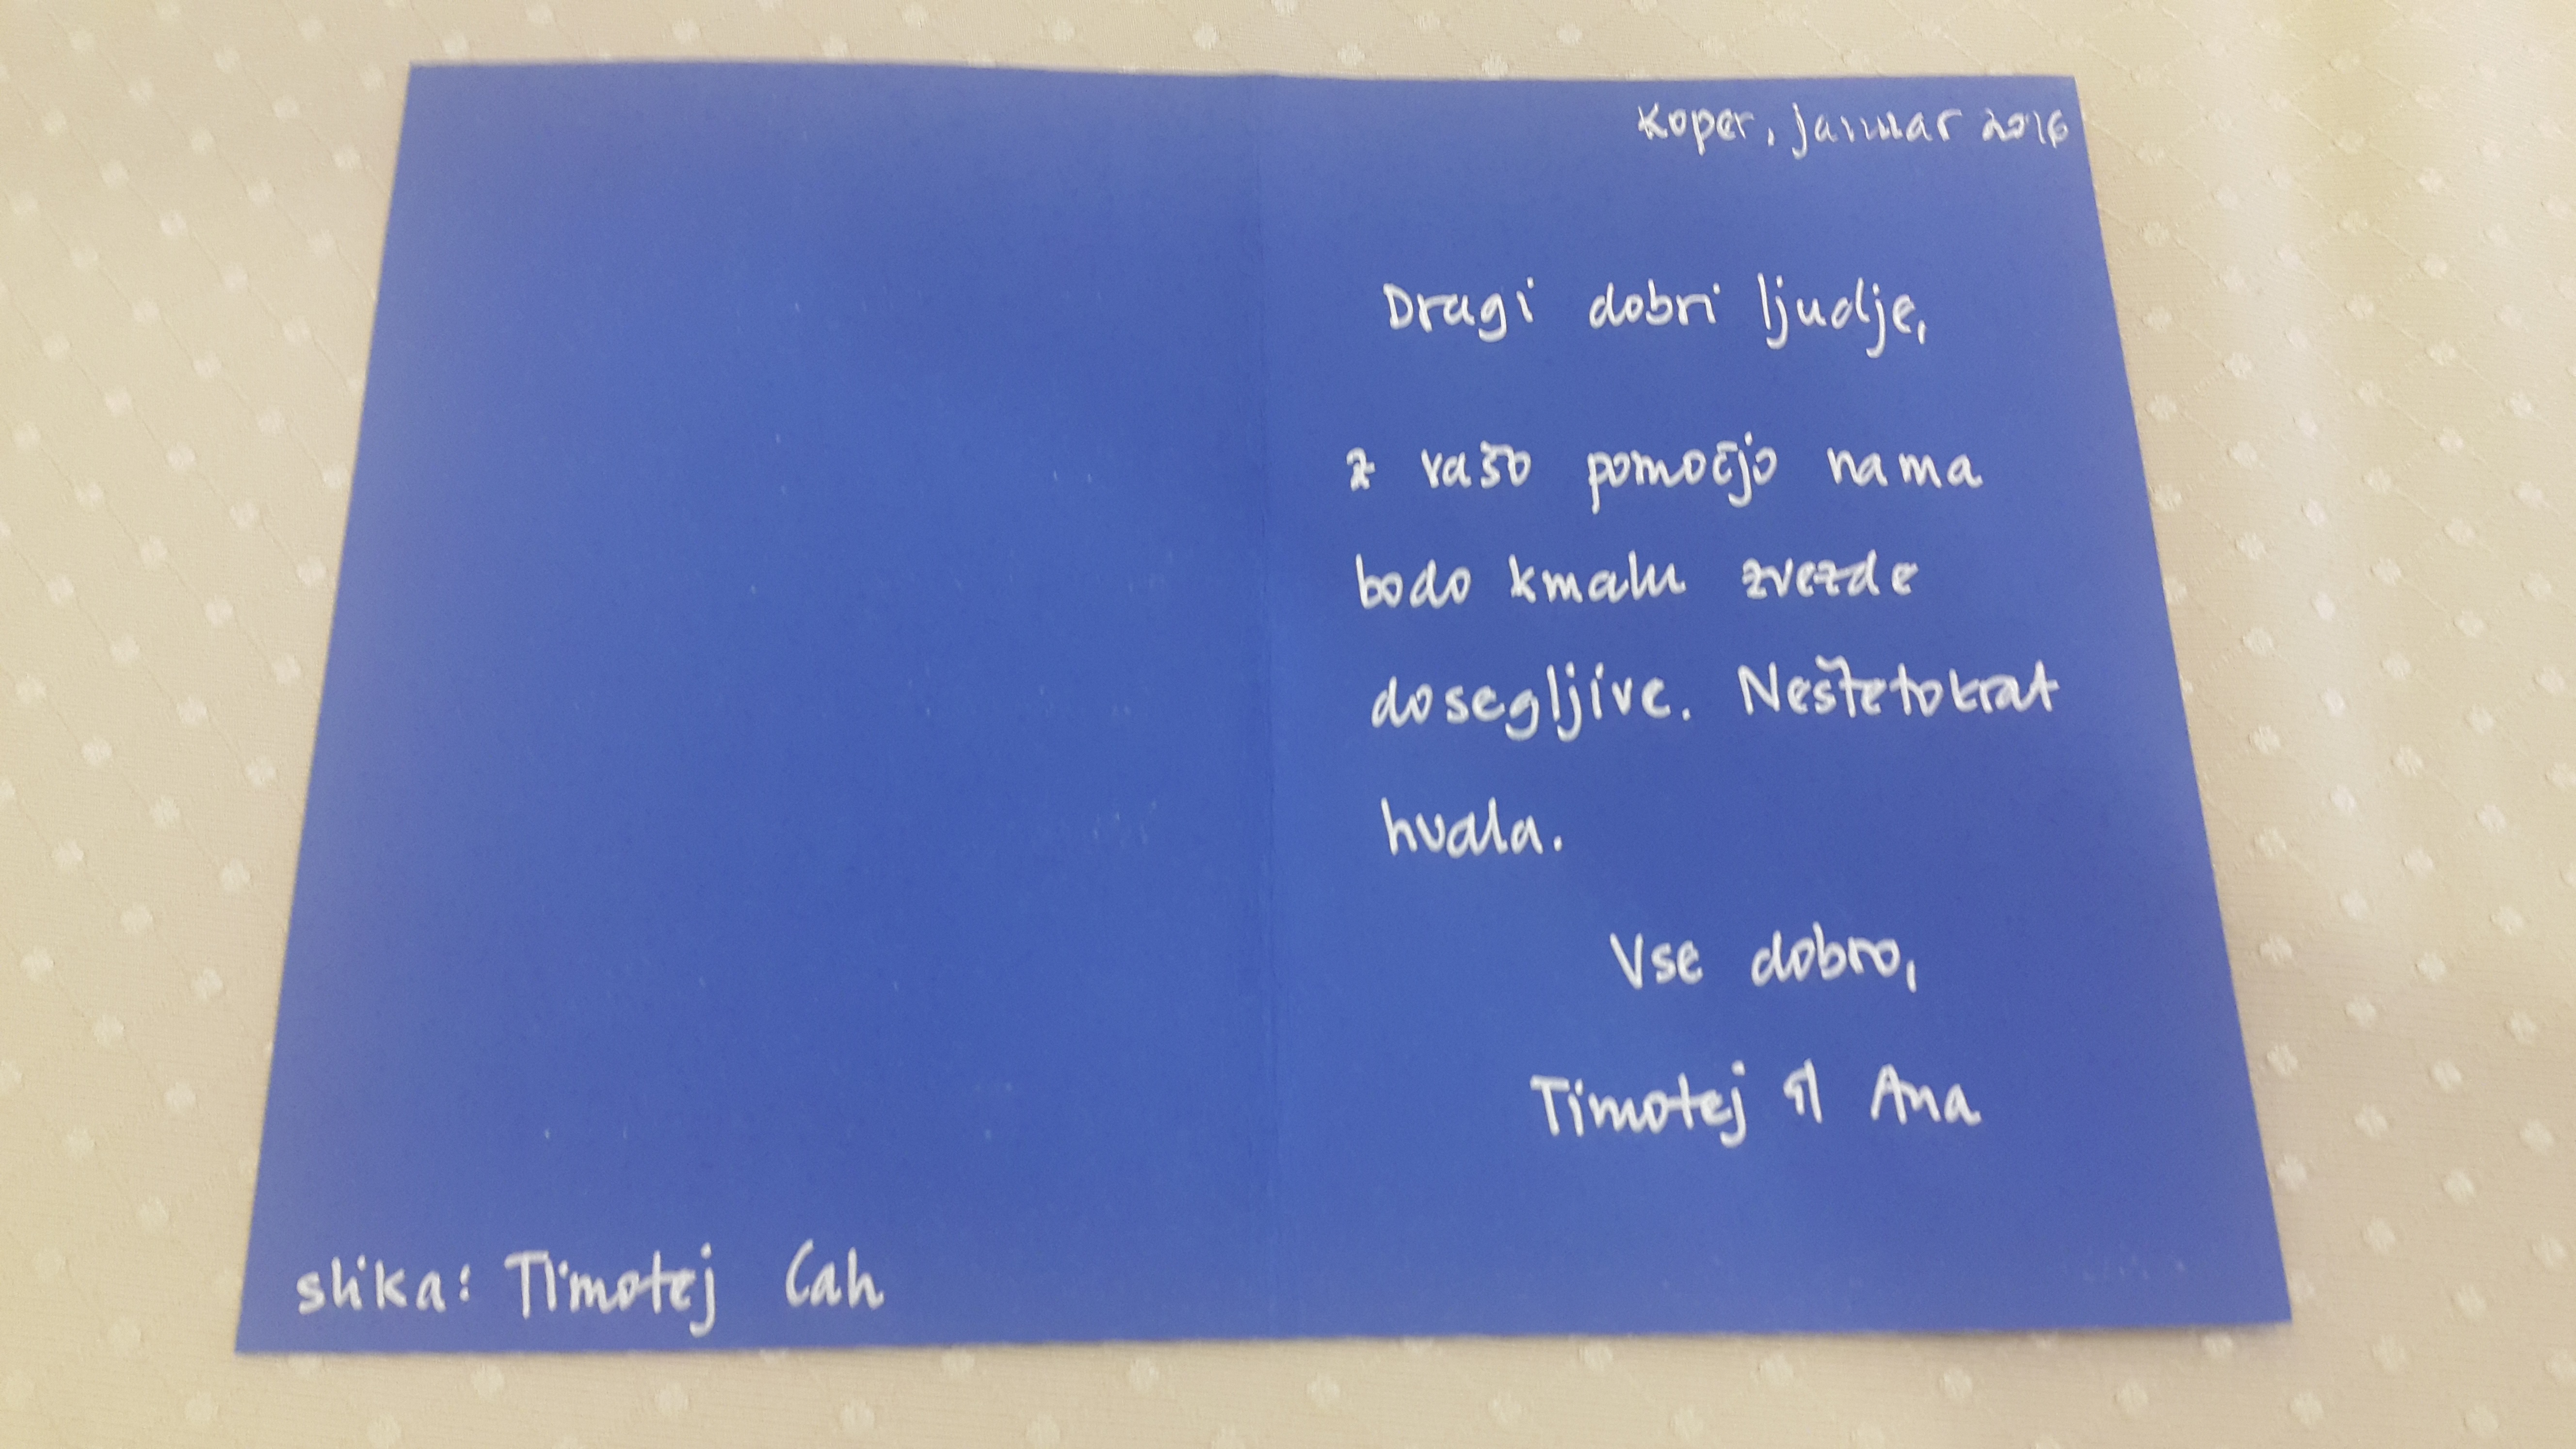 Koper, januar 2016
Dragi dobri ljudje,
z vašo pomočjo nama
bodo kmalu zvezde
dosegljive. Neštetokrat
hvala.
Vse dobro,
Timotej in Ana
slika: Timotej Cah